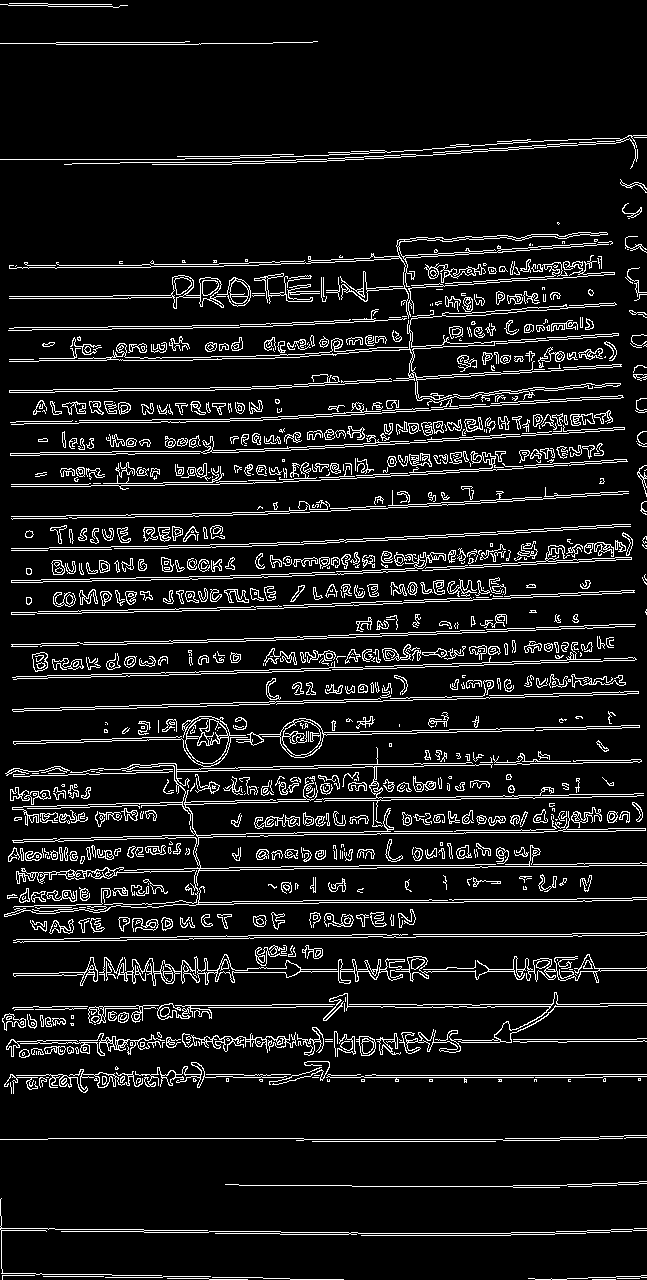 PROTEIN
Operation & Surgery
- High Protein
Diet (animals
& Plant Source)
- for growth and development
ALTERED NUTRITION:
- less than body requirements, UNDERWEIGHT PATIENTS
- more than body requirement OVERWEIGHT PATIENTS
• TISSUE REPAIR
• BUILDING BLOCKS (hormones
• COMPLEX STRUCTURE / LARGE MOLECULE
Breakdown into AMINO ACIDS small molecule
(22 usually) simple substance
AA → cell
undergo metabolism:
✓ catabolism (breakdown/digestion)
✓ anabolism (building up
Hepatitis
- increase protein
Alcoholic, liver
liver cancer
- decrease protein
WASTE PRODUCT OF PROTEIN
AMMONIA goes to → LIVER → UREA
KIDNEYS
Problem: Blood Chem
↑ ammonia (Hepatic
↑ urea (Diabetes)